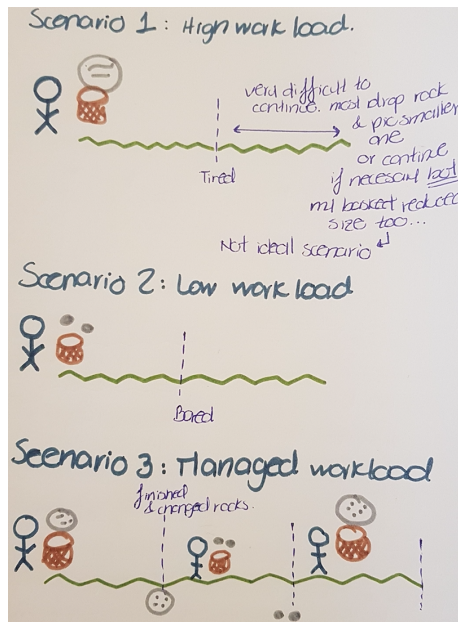 Scenario 1: High work load.
very difficult to
continue. most drop rock
& pic smaller
one
or continue
if necesary but
my basket reduced
size too...
Tired
Not ideal scenario
Scenario 2: Low work load
Bored
Scenario 3: Managed workload
finished
& changed rocks.